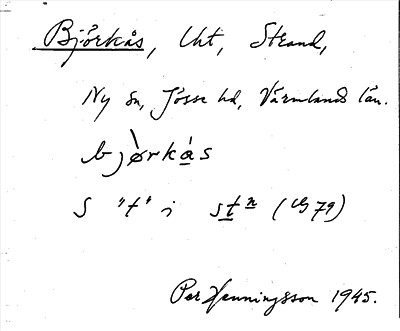 Björkås, Uht, Strand,
Ny sn, Jösse hd, Värmlands län.
bjø̀rkás
S "t" i stn (Us 79)
Per Henningsson 1945.